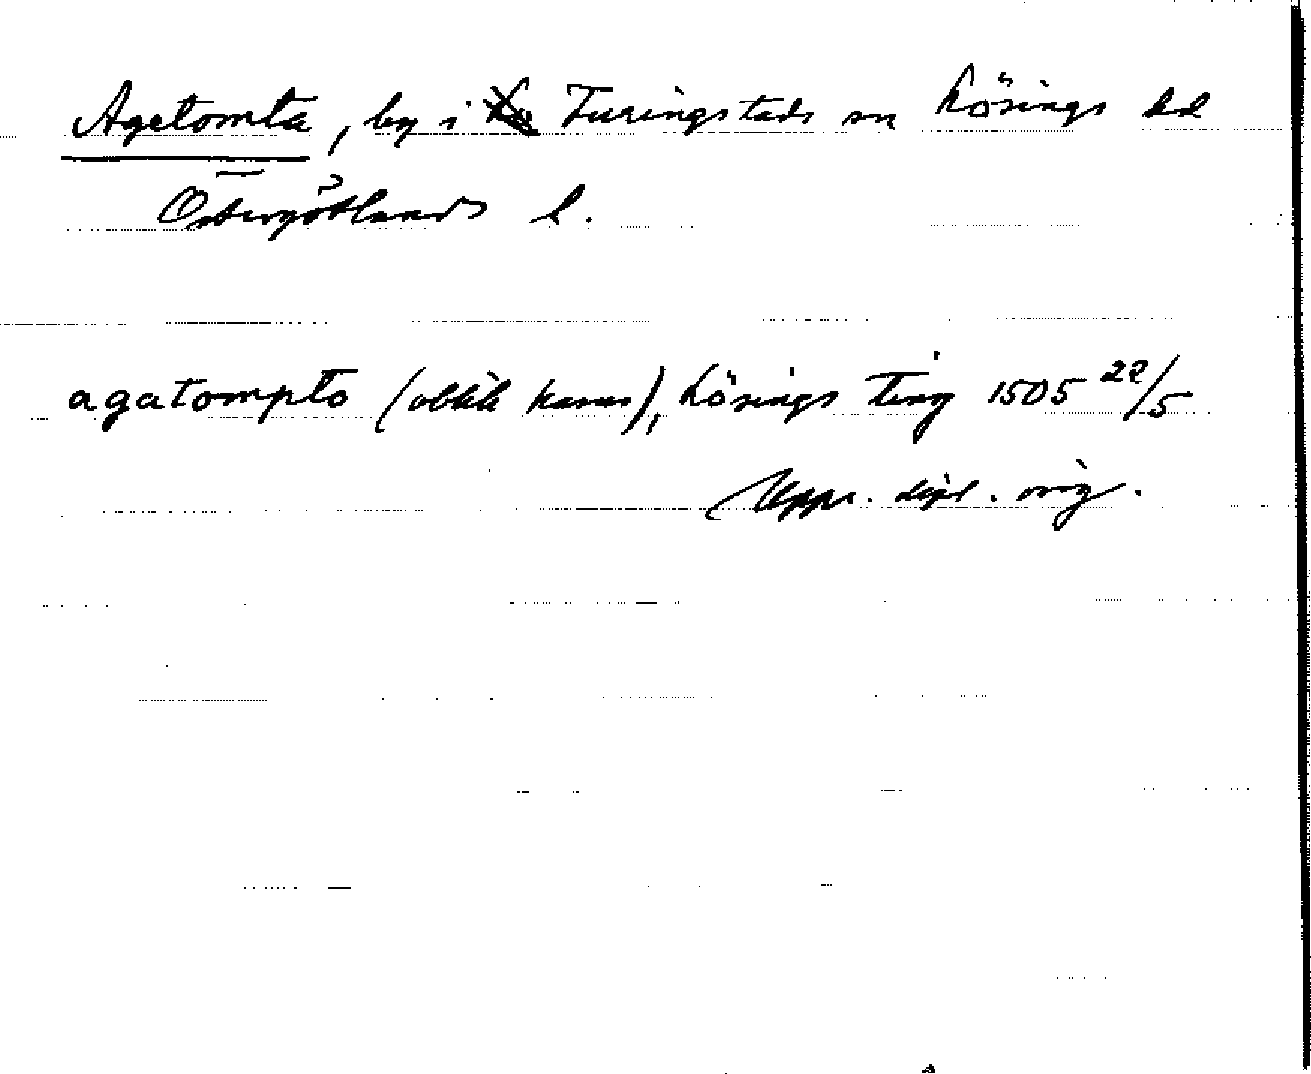 Agetomta, by i Furingstads sn Lösings hd
Östergötlands l.
agatompto (oblik kasus), Lösings ting 1505 22/5
Upps. dipl. orig.